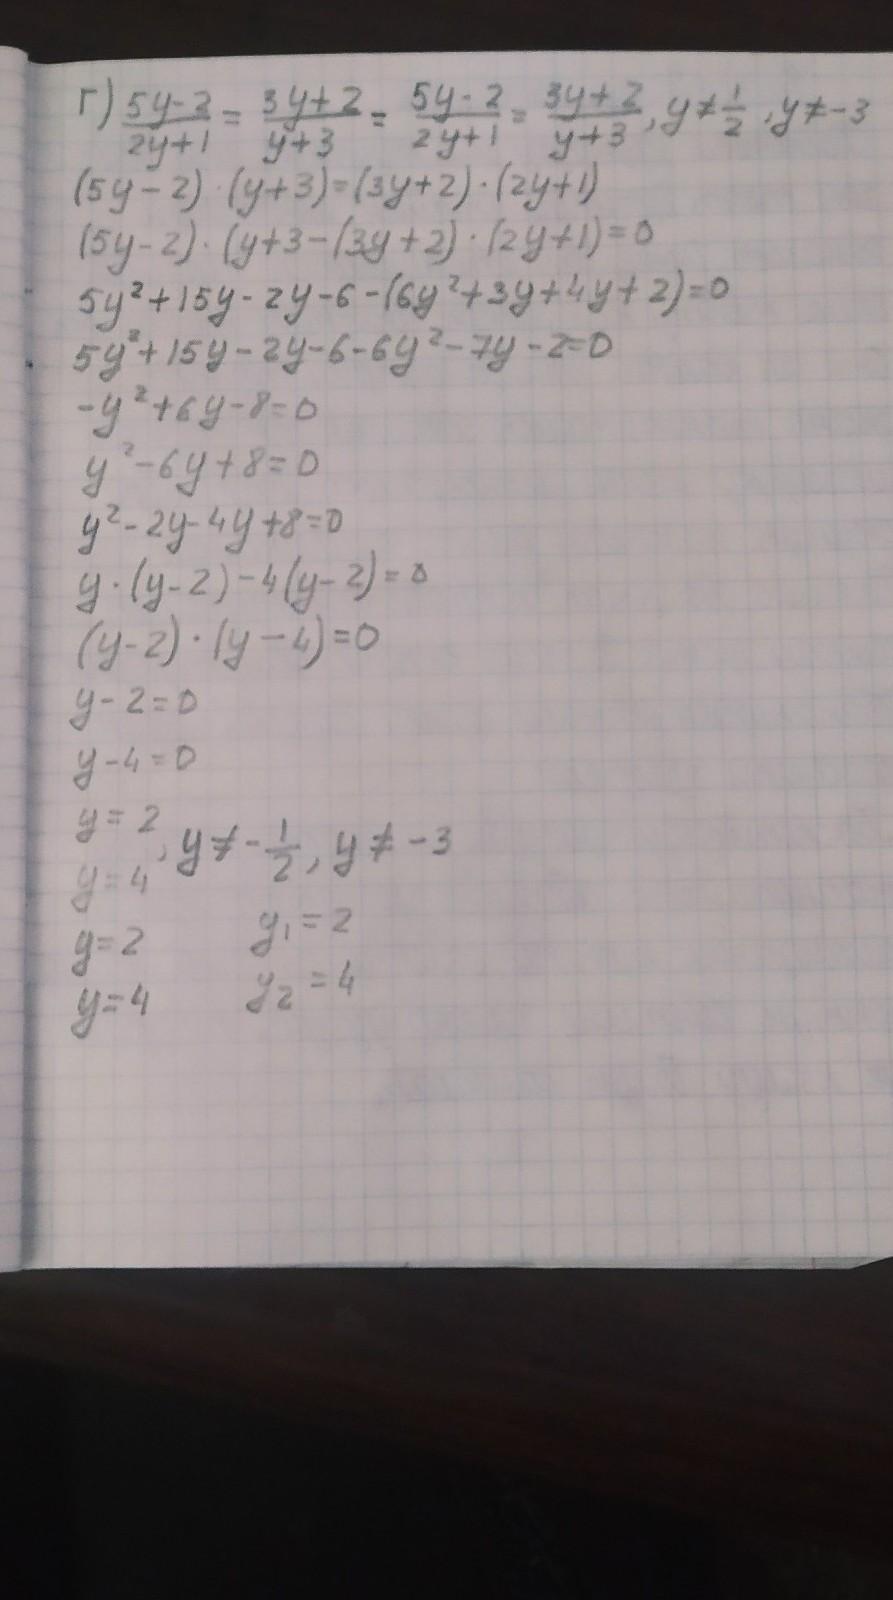 г) (5y-2)/(2y+1) = (3y+2)/(y+3) = (5y-2)/(2y+1) = (3y+2)/(y+3), y≠1/2, y≠-3
(5y-2)·(y+3)=(3y+2)·(2y+1)
(5y-2)·(y+3-(3y+2)·(2y+1)=0
5y²+15y-2y-6-(6y²+3y+4y+2)=0
5y²+15y-2y-6-6y²-7y-2=0
-y²+6y-8=0
y²-6y+8=0
y²-2y-4y+8=0
y·(y-2)-4(y-2)=0
(y-2)·(y-4)=0
y-2=0
y-4=0
y=2
, y≠-1/2, y≠-3
y=4
y=2 y₁=2
y=4 y₂=4